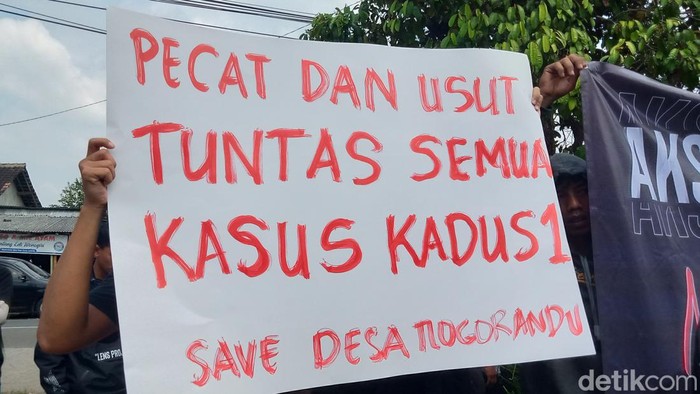 PECAT DAN USUT
TUNTAS SEMUA
KASUS KADUS 1
SAVE DESA TLOGORANDU
AKS
"LENS PRO
detikcom